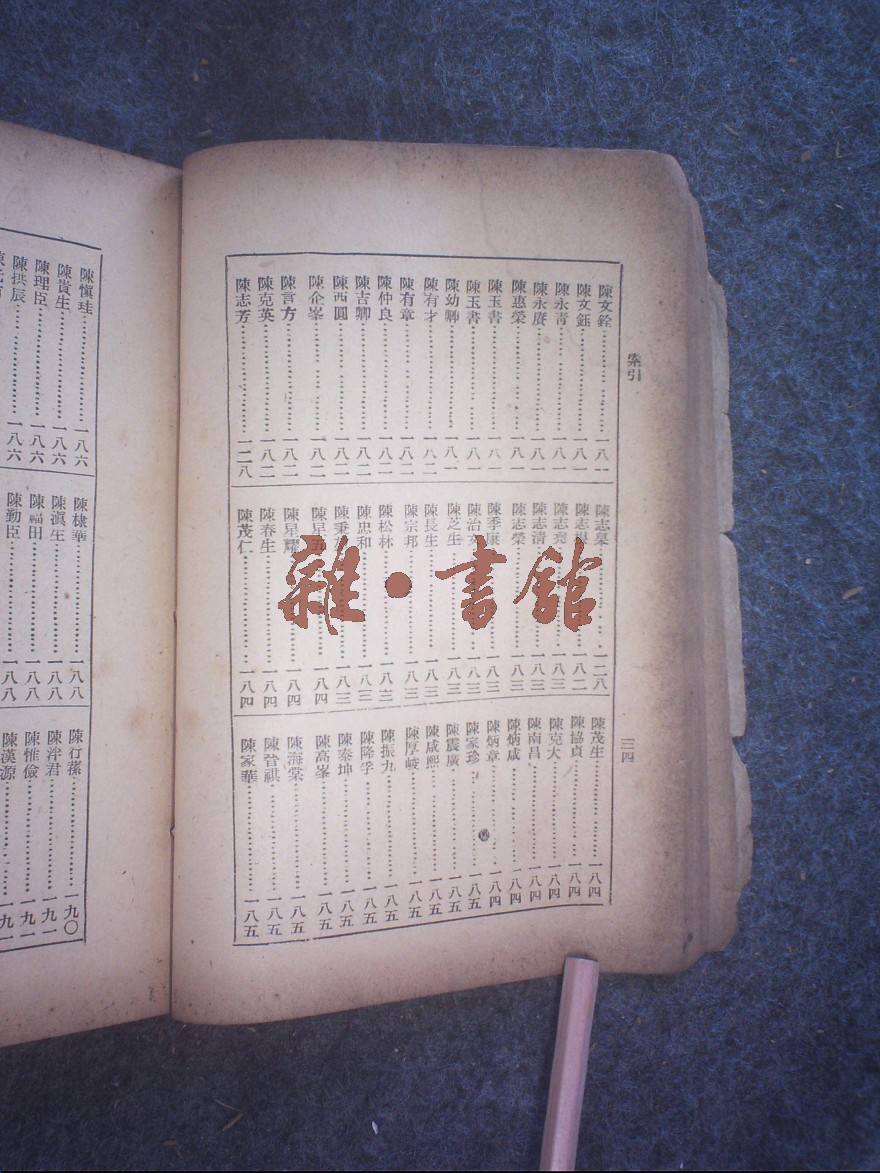 案引
三四
陳文銓 一八一
陳文鈺 一八一
陳永靑 一八一
陳永賡 一八一
陳惠榮 一八一
陳玉書 一八一
陳玉書 一八一
陳幼卿 一八一
陳有才 一八二
陳有章 一八二
陳仲良 一八二
陳吉卿 一八二
陳西圓 一八二
陳企峯 一八二
陳言方 一八二
陳克英 一八二
陳志芳 一二八
陳志皋 一二八
陳志 一八二
陳志堯 一八三
陳志淸 一八三
陳志榮 一八三
陳季康 一八三
陳治 一八三
陳芝生 一八三
陳長生 一八三
陳宗邦 一八三
陳松林 一八三
陳忠和 一八三
陳秉 一八三
陳星五 一八四
陳星耀 一八四
陳春生 一八四
陳茂仁 一八四
陳茂生 一八四
陳協貞 一八四
陳克大 一八四
陳南昌 一八四
陳炳成 一八四
陳炳章 一八四
陳家珍 一八五
陳震廣 一八五
陳咸熙 一八五
陳厚峻 一八五
陳振九 一八五
陳隆孚 一八五
陳泰坤 一八五
陳高峯 一八五
陳海棠 一八五
陳晉祺 一八五
陳家華 一八五
陳愼珪 一八六
陳貴生 一八六
陳理臣 一八六
陳拱辰 一八六
陳棣華 一八八
陳滇生 一八八
陳福田 一八八
陳勤臣 一八八
陳行蓀 一九〇
陳泮君 一九一
陳惟儉 一九一
陳漢源 一九一
雜·書館